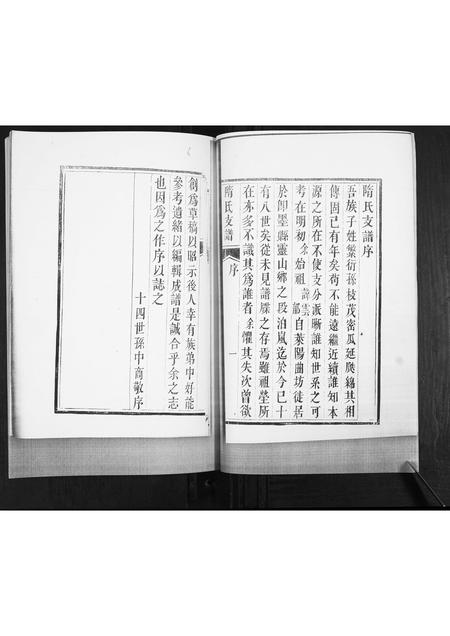 隋氏支譜序
吾族子姓繁衍孫枝茂密瓜延瓞綿其相
傳固已有年矣苟不能遠繼近續誰知本
源之所在不使支分派晰誰知世系之可
考在明初余始祖諱雲鵬自萊陽曲坊徒居
於卽墨縣靈山鄉之段泊嵐迄於今已十
有八世矣從未見譜牒之存焉雖祖塋所
在亦多不識其爲誰者余懼其失次曾欲
隋氏支譜
序
一
創爲草稿以昭示後人幸有族弟中好能
參考遺緒以編輯成譜是誠合乎余之志
也因爲之作序以誌之
十四世孫中喬敬序